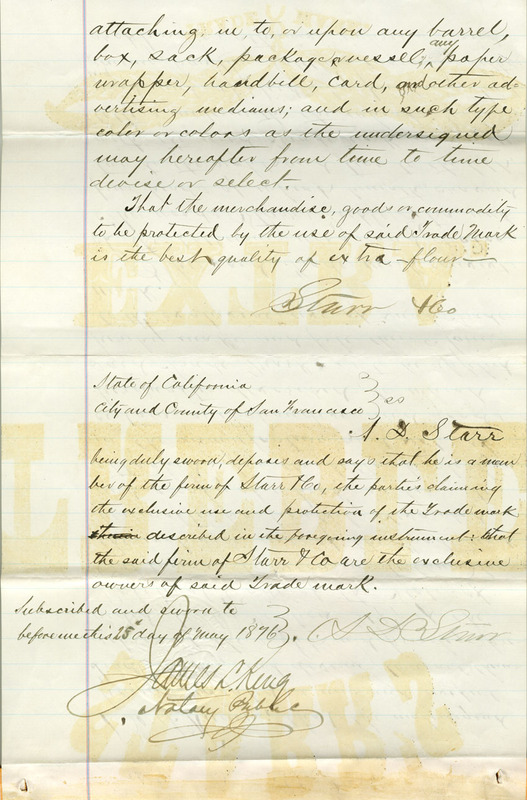 attaching in, to, or upon any barrel,
box, sack, package or vessel, any paper
wrapper, handbill, card, and other ad-
vertising mediums; and in such type
color or colors as the undersigned
may hereafter from time to time
devise or select.
That the merchandise, goods or commodity
to be protected by the use of said Trade Mark
is the best quality of extra flour
Starr & Co
State of California
City and County of San Francisco } ss
A. D. Starr
being duly sworn, deposes and says that he is a mem
ber of the firm of Starr & Co, the parties claiming
the exclusive use and protection of the Trade mark
described in the foregoing instrument: that
the said firm of Starr & Co are the exclusive
owners of said Trade mark.
Subscribed and sworn to
before me this 25th day of May 1896 }. A D Starr
James L. King
Notary Public